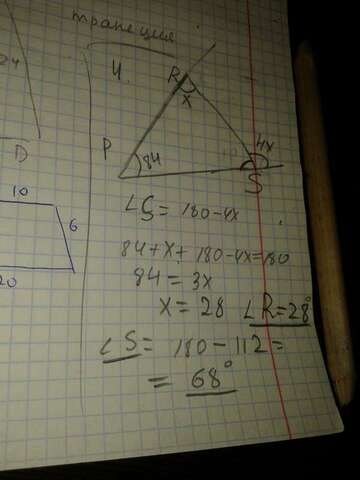 трапеция
24
4.
R
x
4x
P
84
S
D
10
6
20
∠S = 180-4x
84+x+180-4x=180
84=3x
x=28 ∠R=28°
∠S= 180-112=
= 68°